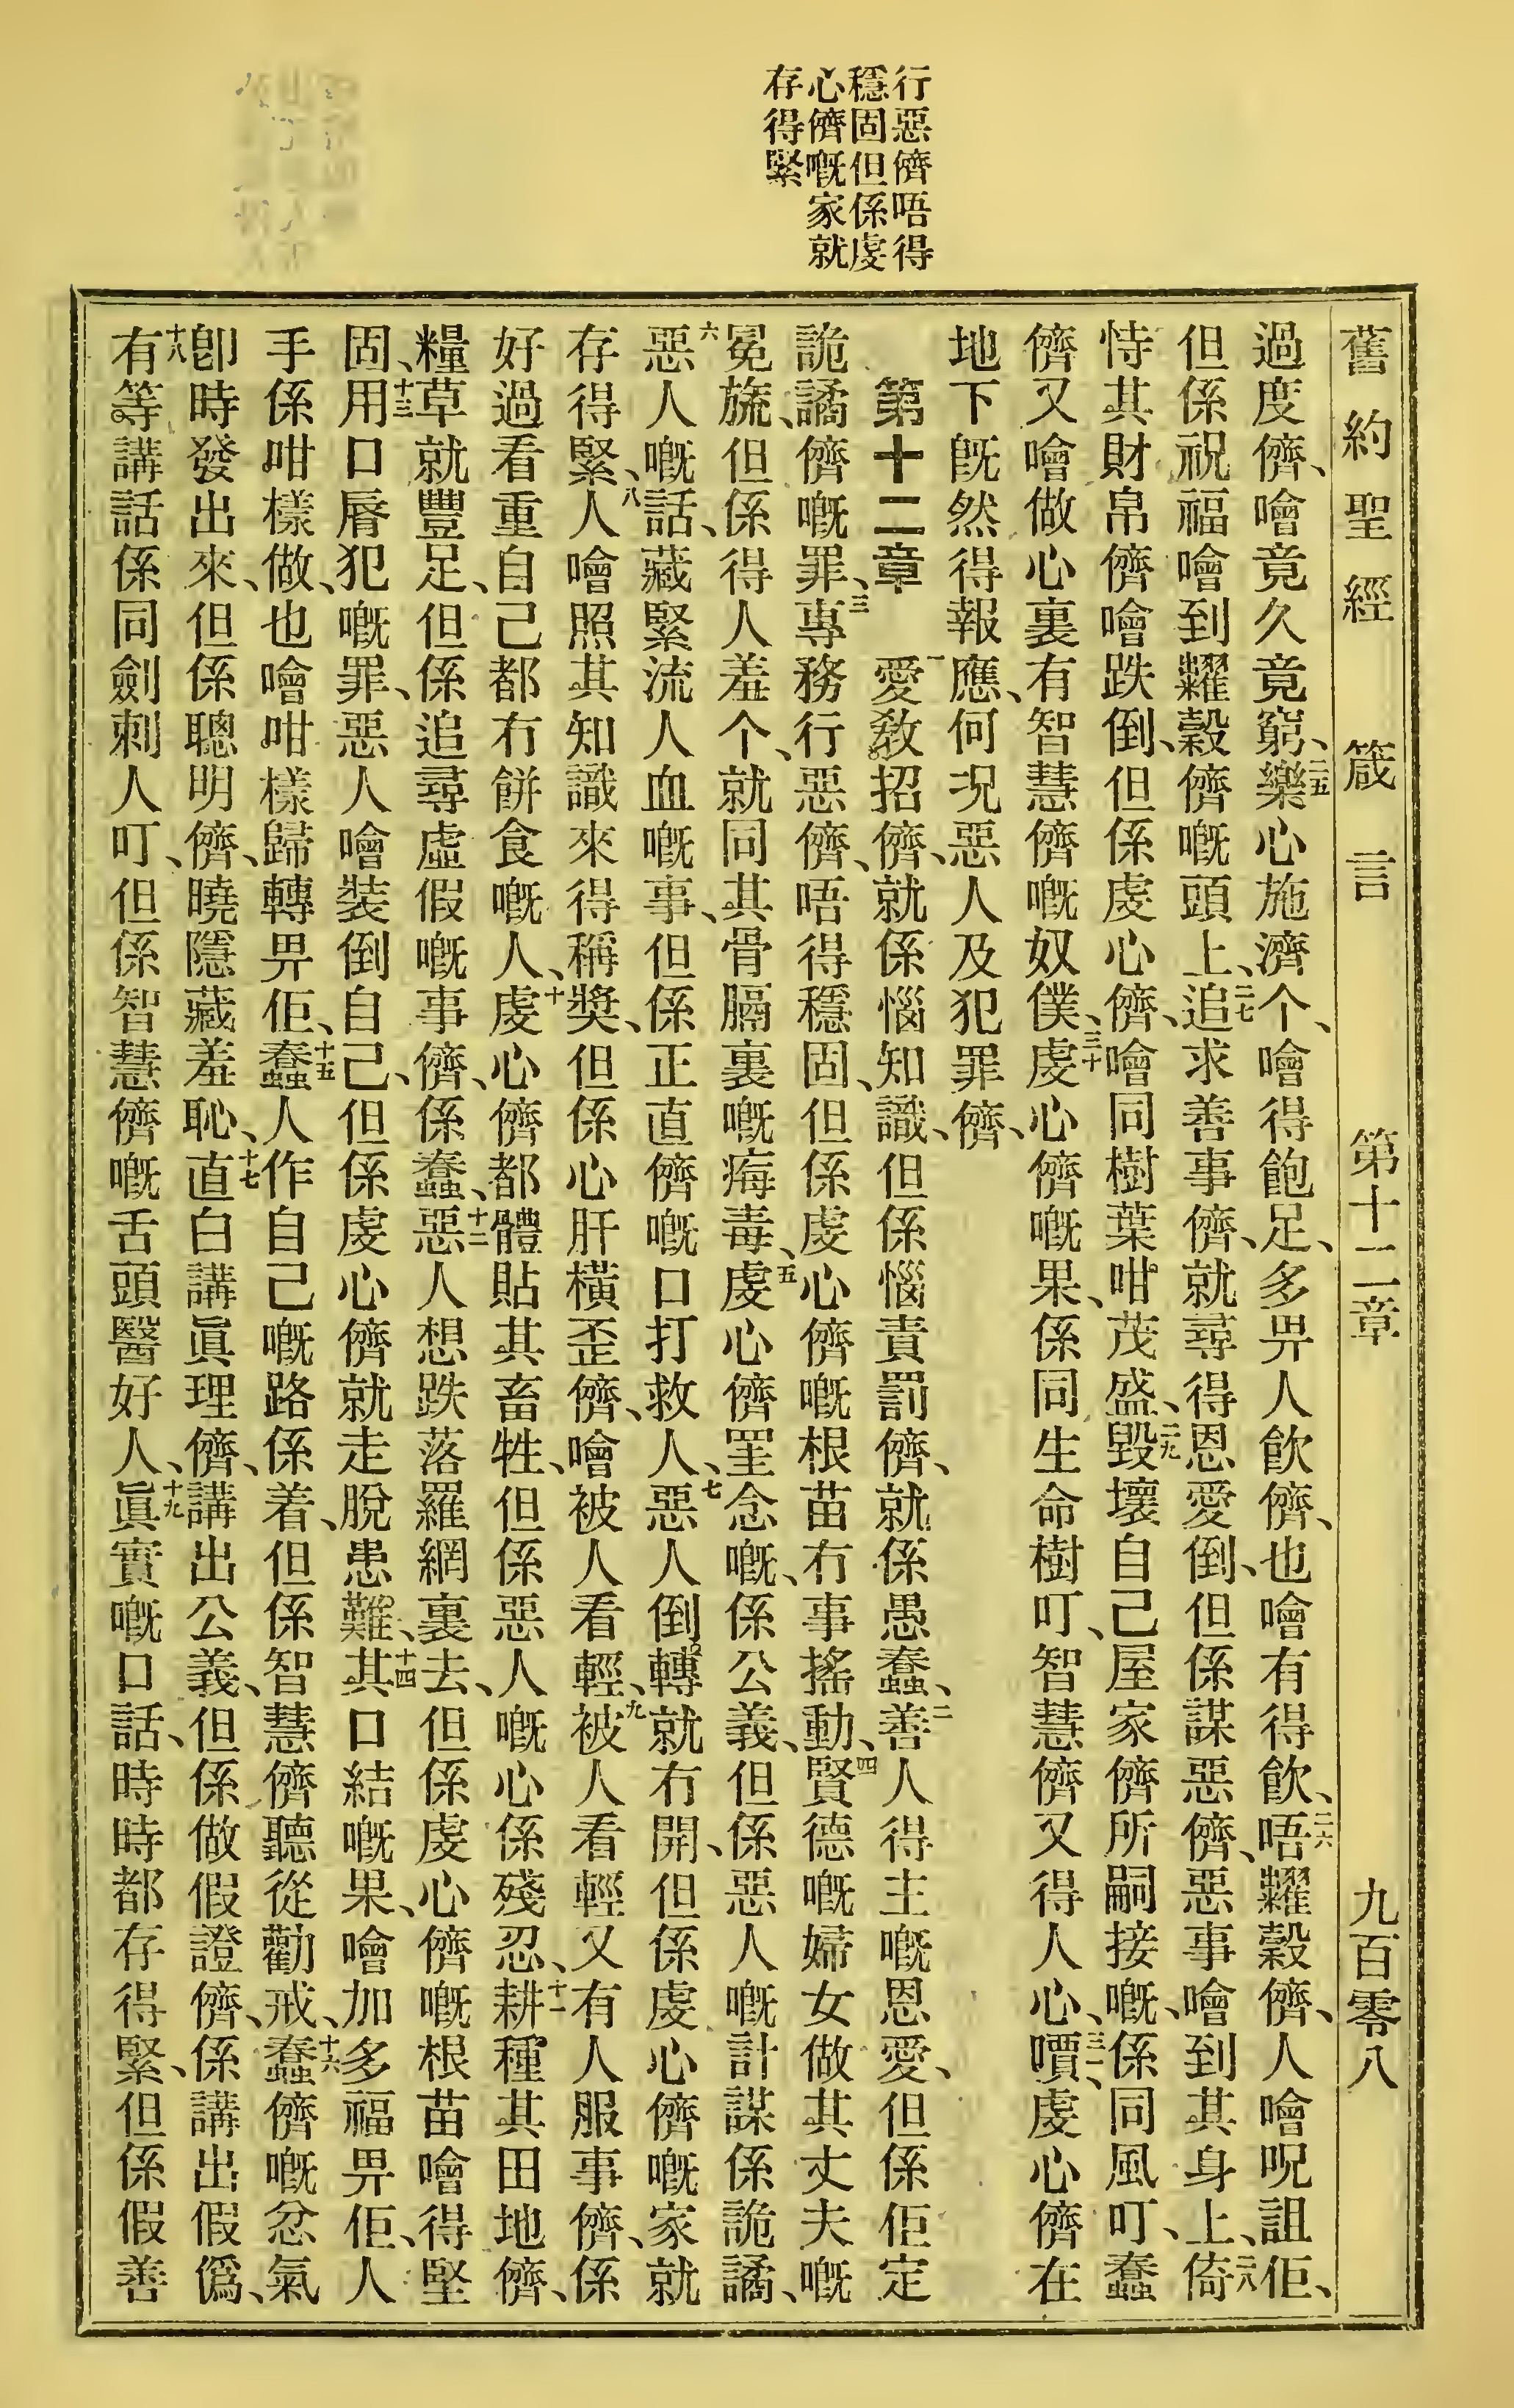 行惡儕唔得
穩固但係虔
心儕嘅家就
存得緊
舊約聖經 箴言 第十二章 九百零八
過度儕、噲竟久竟窮、二五樂心施濟个、噲得飽足、多畀人飲儕、也噲有得飲、二六唔糶穀儕、人噲呪詛佢、
但係祝福噲到糶穀儕嘅頭上、二七追求善事儕、就尋得恩愛倒、但係謀惡儕、惡事噲到其身上、二八倚
恃其財帛儕噲跌倒、但係虔心儕、噲同樹葉咁茂盛、二九毀壞自己屋家儕所嗣接嘅、係同風叮、蠢
儕又噲做心裏有智慧儕嘅奴僕、三十虔心儕嘅果、係同生命樹叮、智慧儕又得人心、三一嘳、虔心儕在
地下旣然得報應、何况惡人及犯罪儕、
第十二章 一愛敎招儕、就係惱知識、但係惱責罰儕、就係愚蠢、二善人得主嘅恩愛、但係佢定
詭譎儕嘅罪、三專務行惡儕、唔得穩固、但係虔心儕嘅根苗冇事搖動、四賢德嘅婦女做其丈夫嘅
冕旒、但係得人羞个、就同其骨膈裏嘅痗毒、五虔心儕罣念嘅、係公義、但係惡人嘅計謀係詭譎、
六惡人嘅話、藏緊流人血嘅事、但係正直儕嘅口打救人、七惡人倒轉就冇開、但係虔心儕嘅家就
存得緊、八人噲照其知識來得稱獎、但係心肝橫歪儕、噲被人看輕、九被人看輕又有人服事儕、係
好過看重自己都冇餅食嘅人、十虔心儕都體貼其畜牲、但係惡人嘅心係殘忍、十一耕種其田地儕、
糧草就豐足、但係追尋虛假嘅事儕、係蠢、十二惡人想跌落羅網裏去、但係虔心儕嘅根苗噲得堅
固、十三用口脣犯嘅罪、惡人噲裝倒自己、但係虔心儕就走脫患難、十四其口結嘅果、噲加多福畀佢、人
手係咁樣做、也噲咁樣歸轉畀佢、十五蠢人作自己嘅路係着、但係智慧儕聽從勸戒、十六蠢儕嘅忿氣
卽時發出來、但係聰明儕、曉隱藏羞恥、十七直白講眞理儕、講出公義、但係做假證儕、係講出假僞、
十八有等講話係同劍刺人叮、但係智慧儕嘅舌頭醫好人、十九眞實嘅口話、時時都存得緊、但係假善